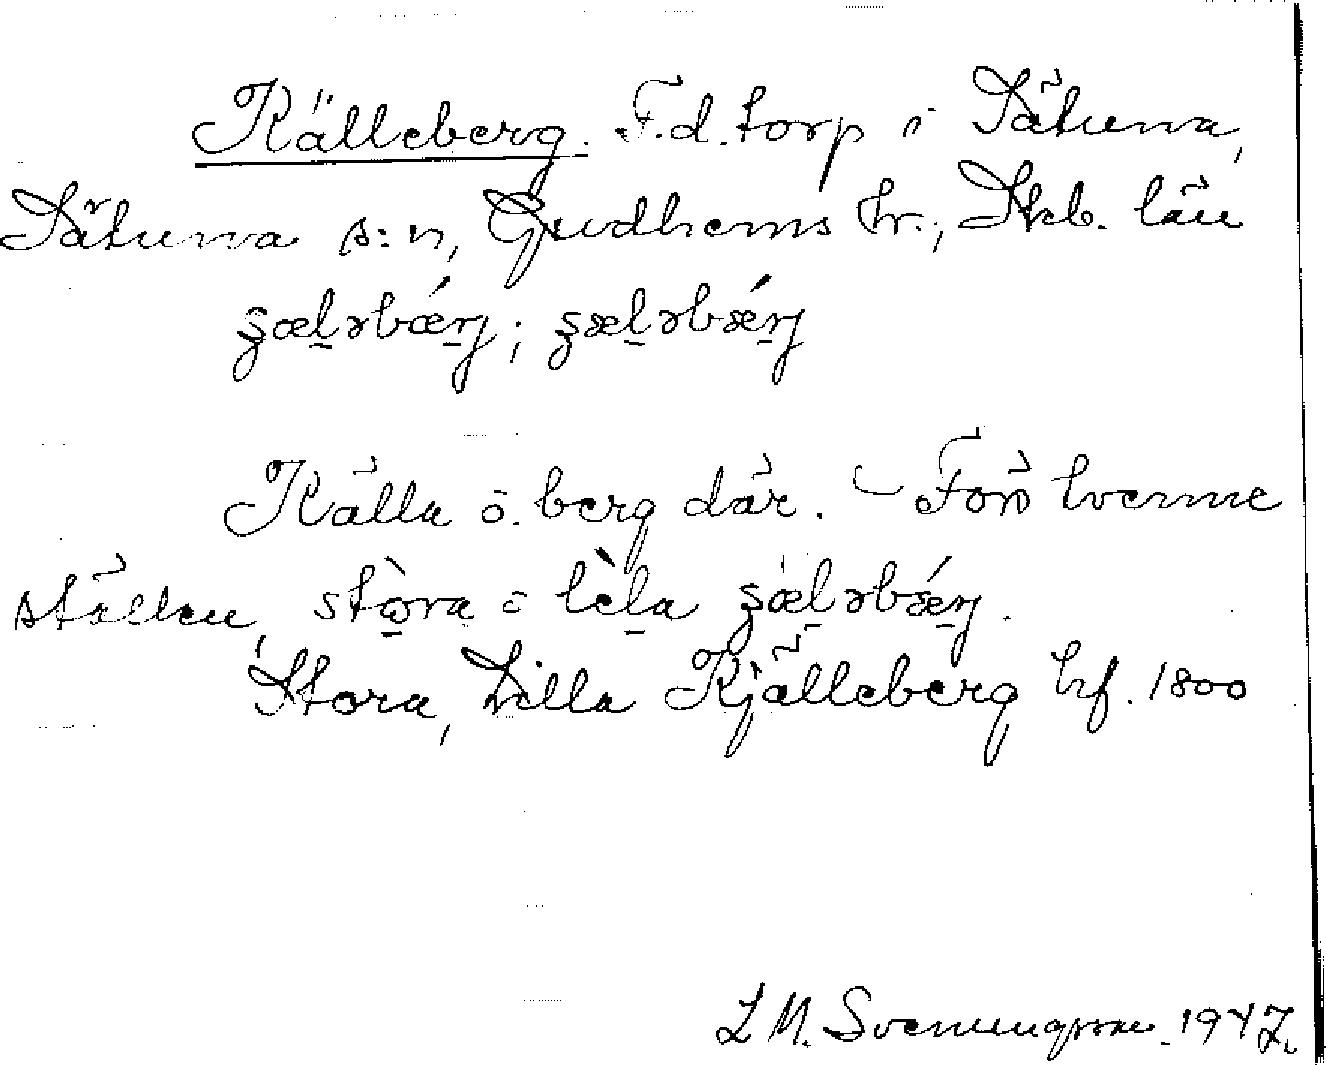 Källeberg. F.d. torp i Sätuna,
Sätuna s:n, Gudhems hr., Skb. län
ʂæl̠əbǽrj; ʂæl̠əbǽrj
Källa o. berg där. – Förr tvenne
ställen, stòra o lèla ʂæl̠əbǽrj.
Stora, Lilla Kjälleberg hf. 1800
L M. Svenungsson. 1947.